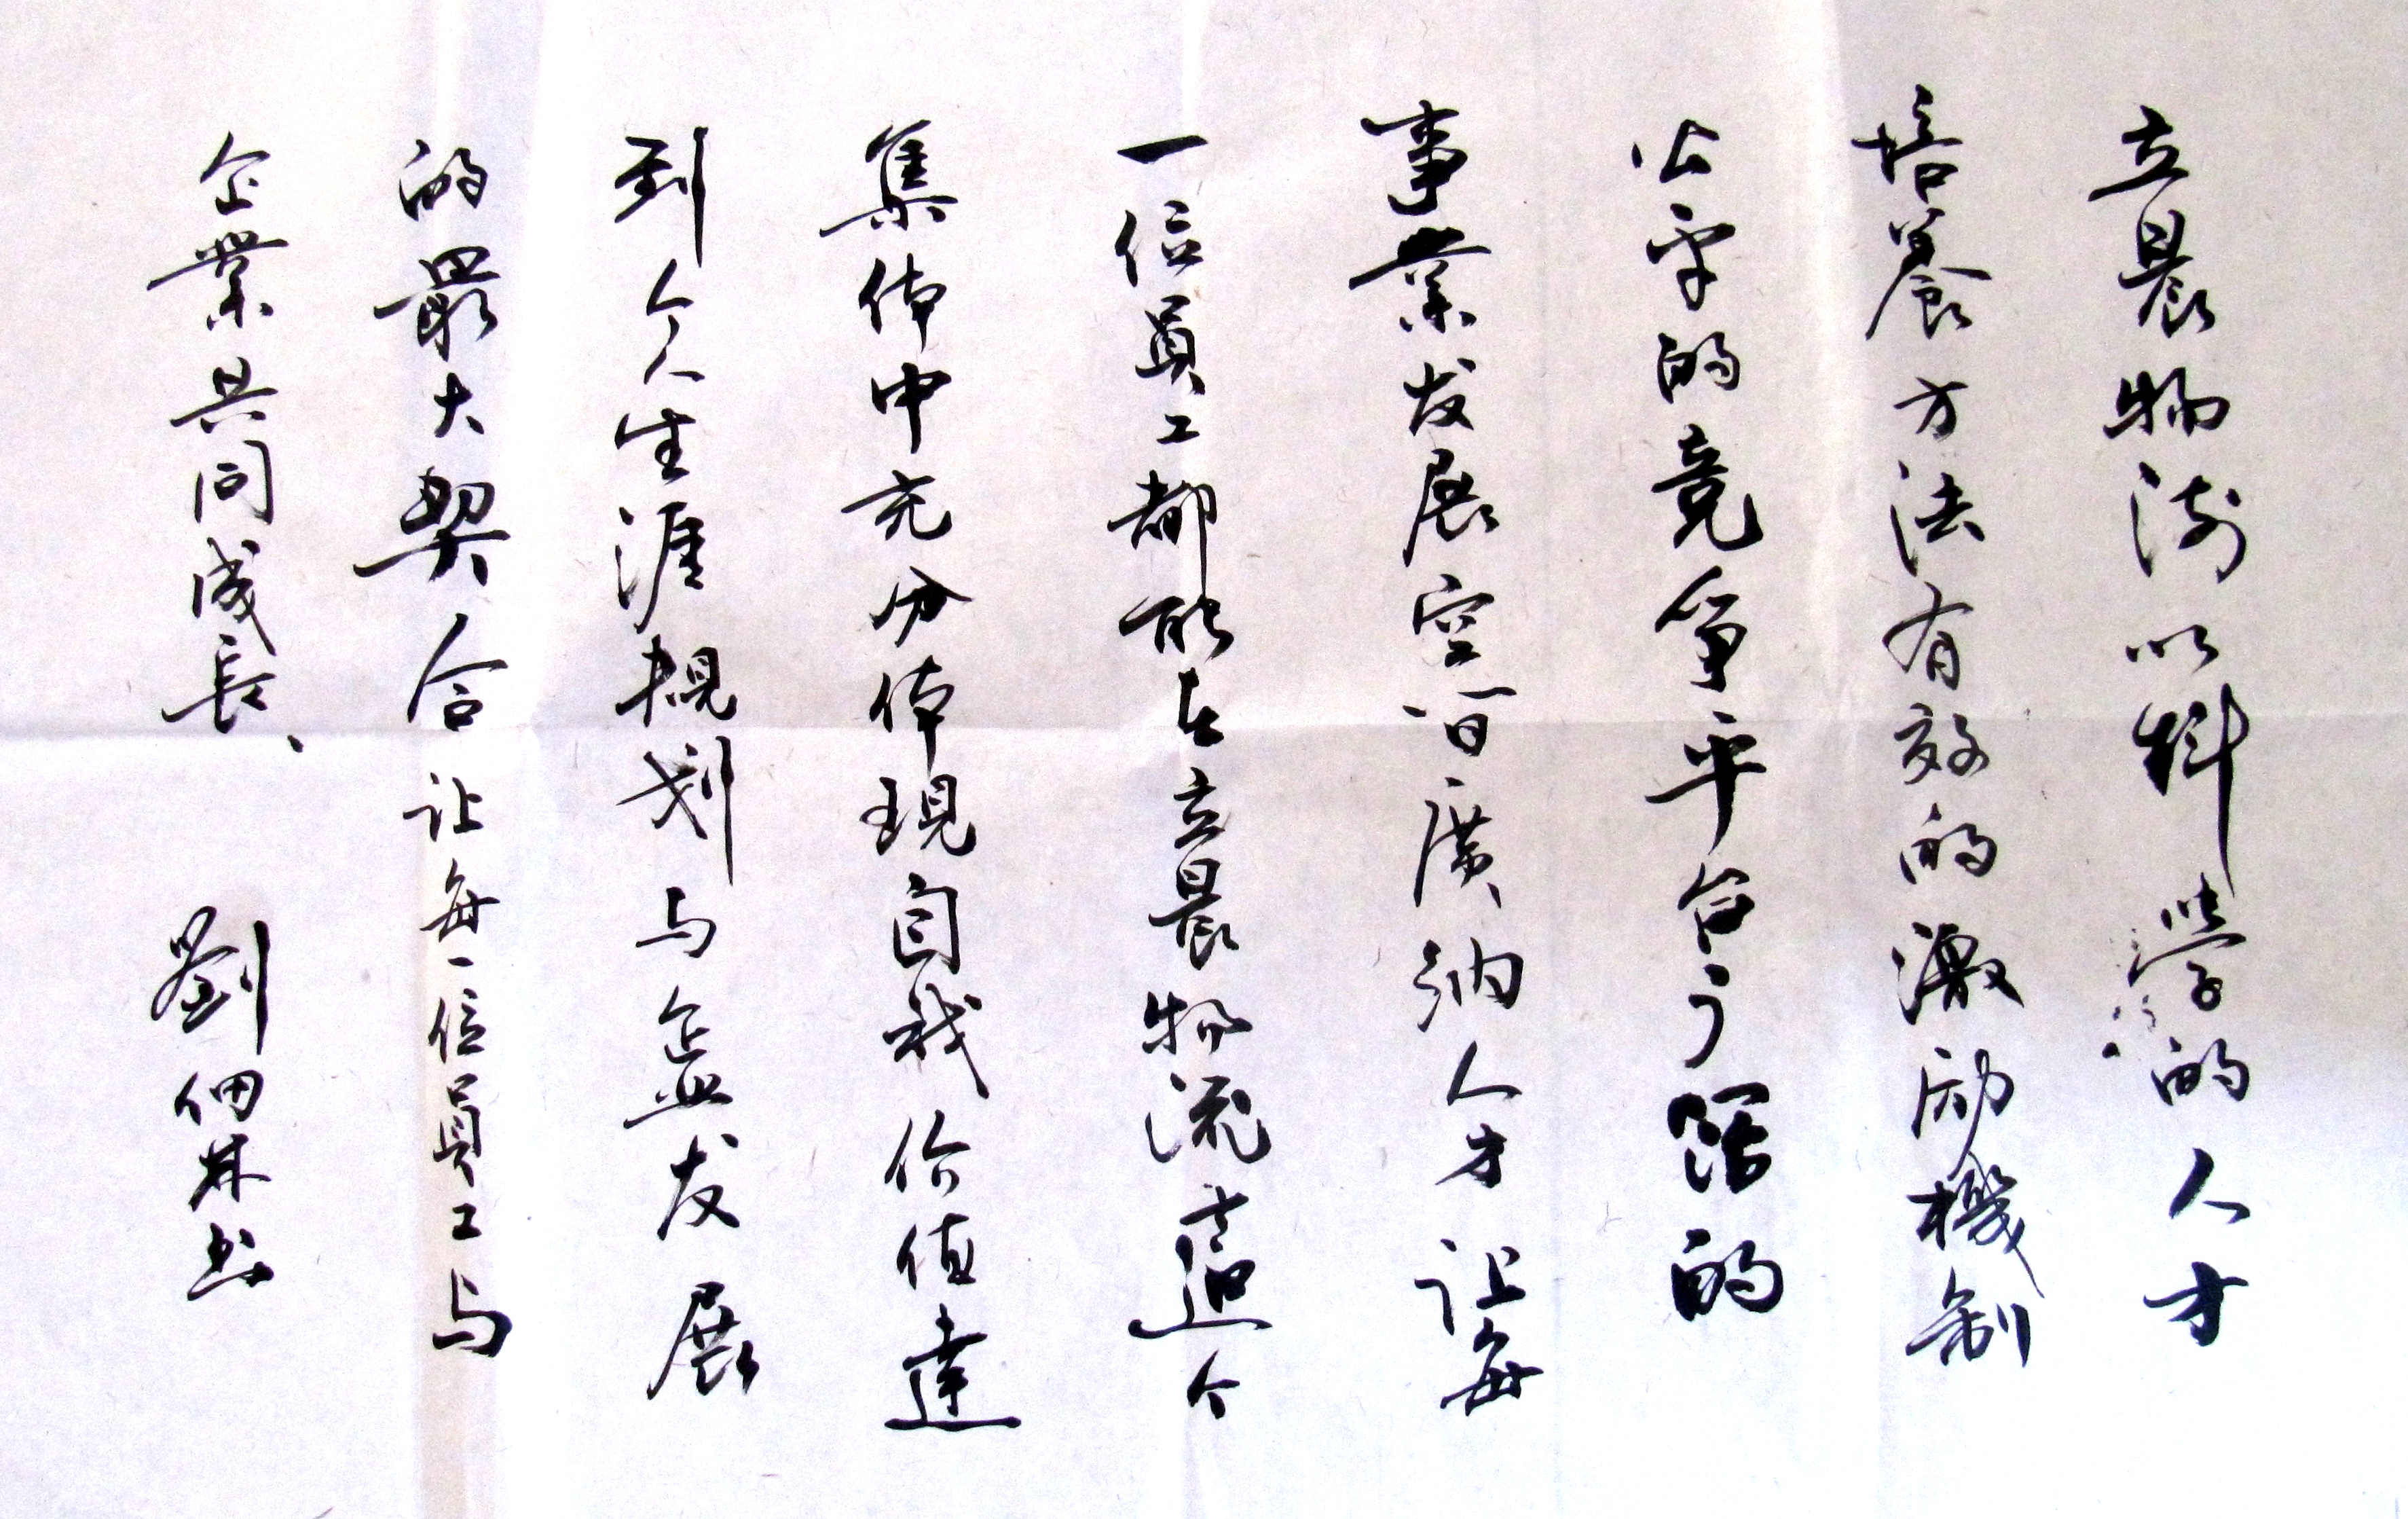 立晨物流以科學的人才
培養方法有效的激励機制
公平的竞爭平台广阔的
事業发展空间廣纳人才让每
一位員工都能在立晨物流這个
集体中充分体現自我价值達
到个人生涯規划与企业发展
的最大契合让每一位員工与
企業共同成長、 劉佃林书